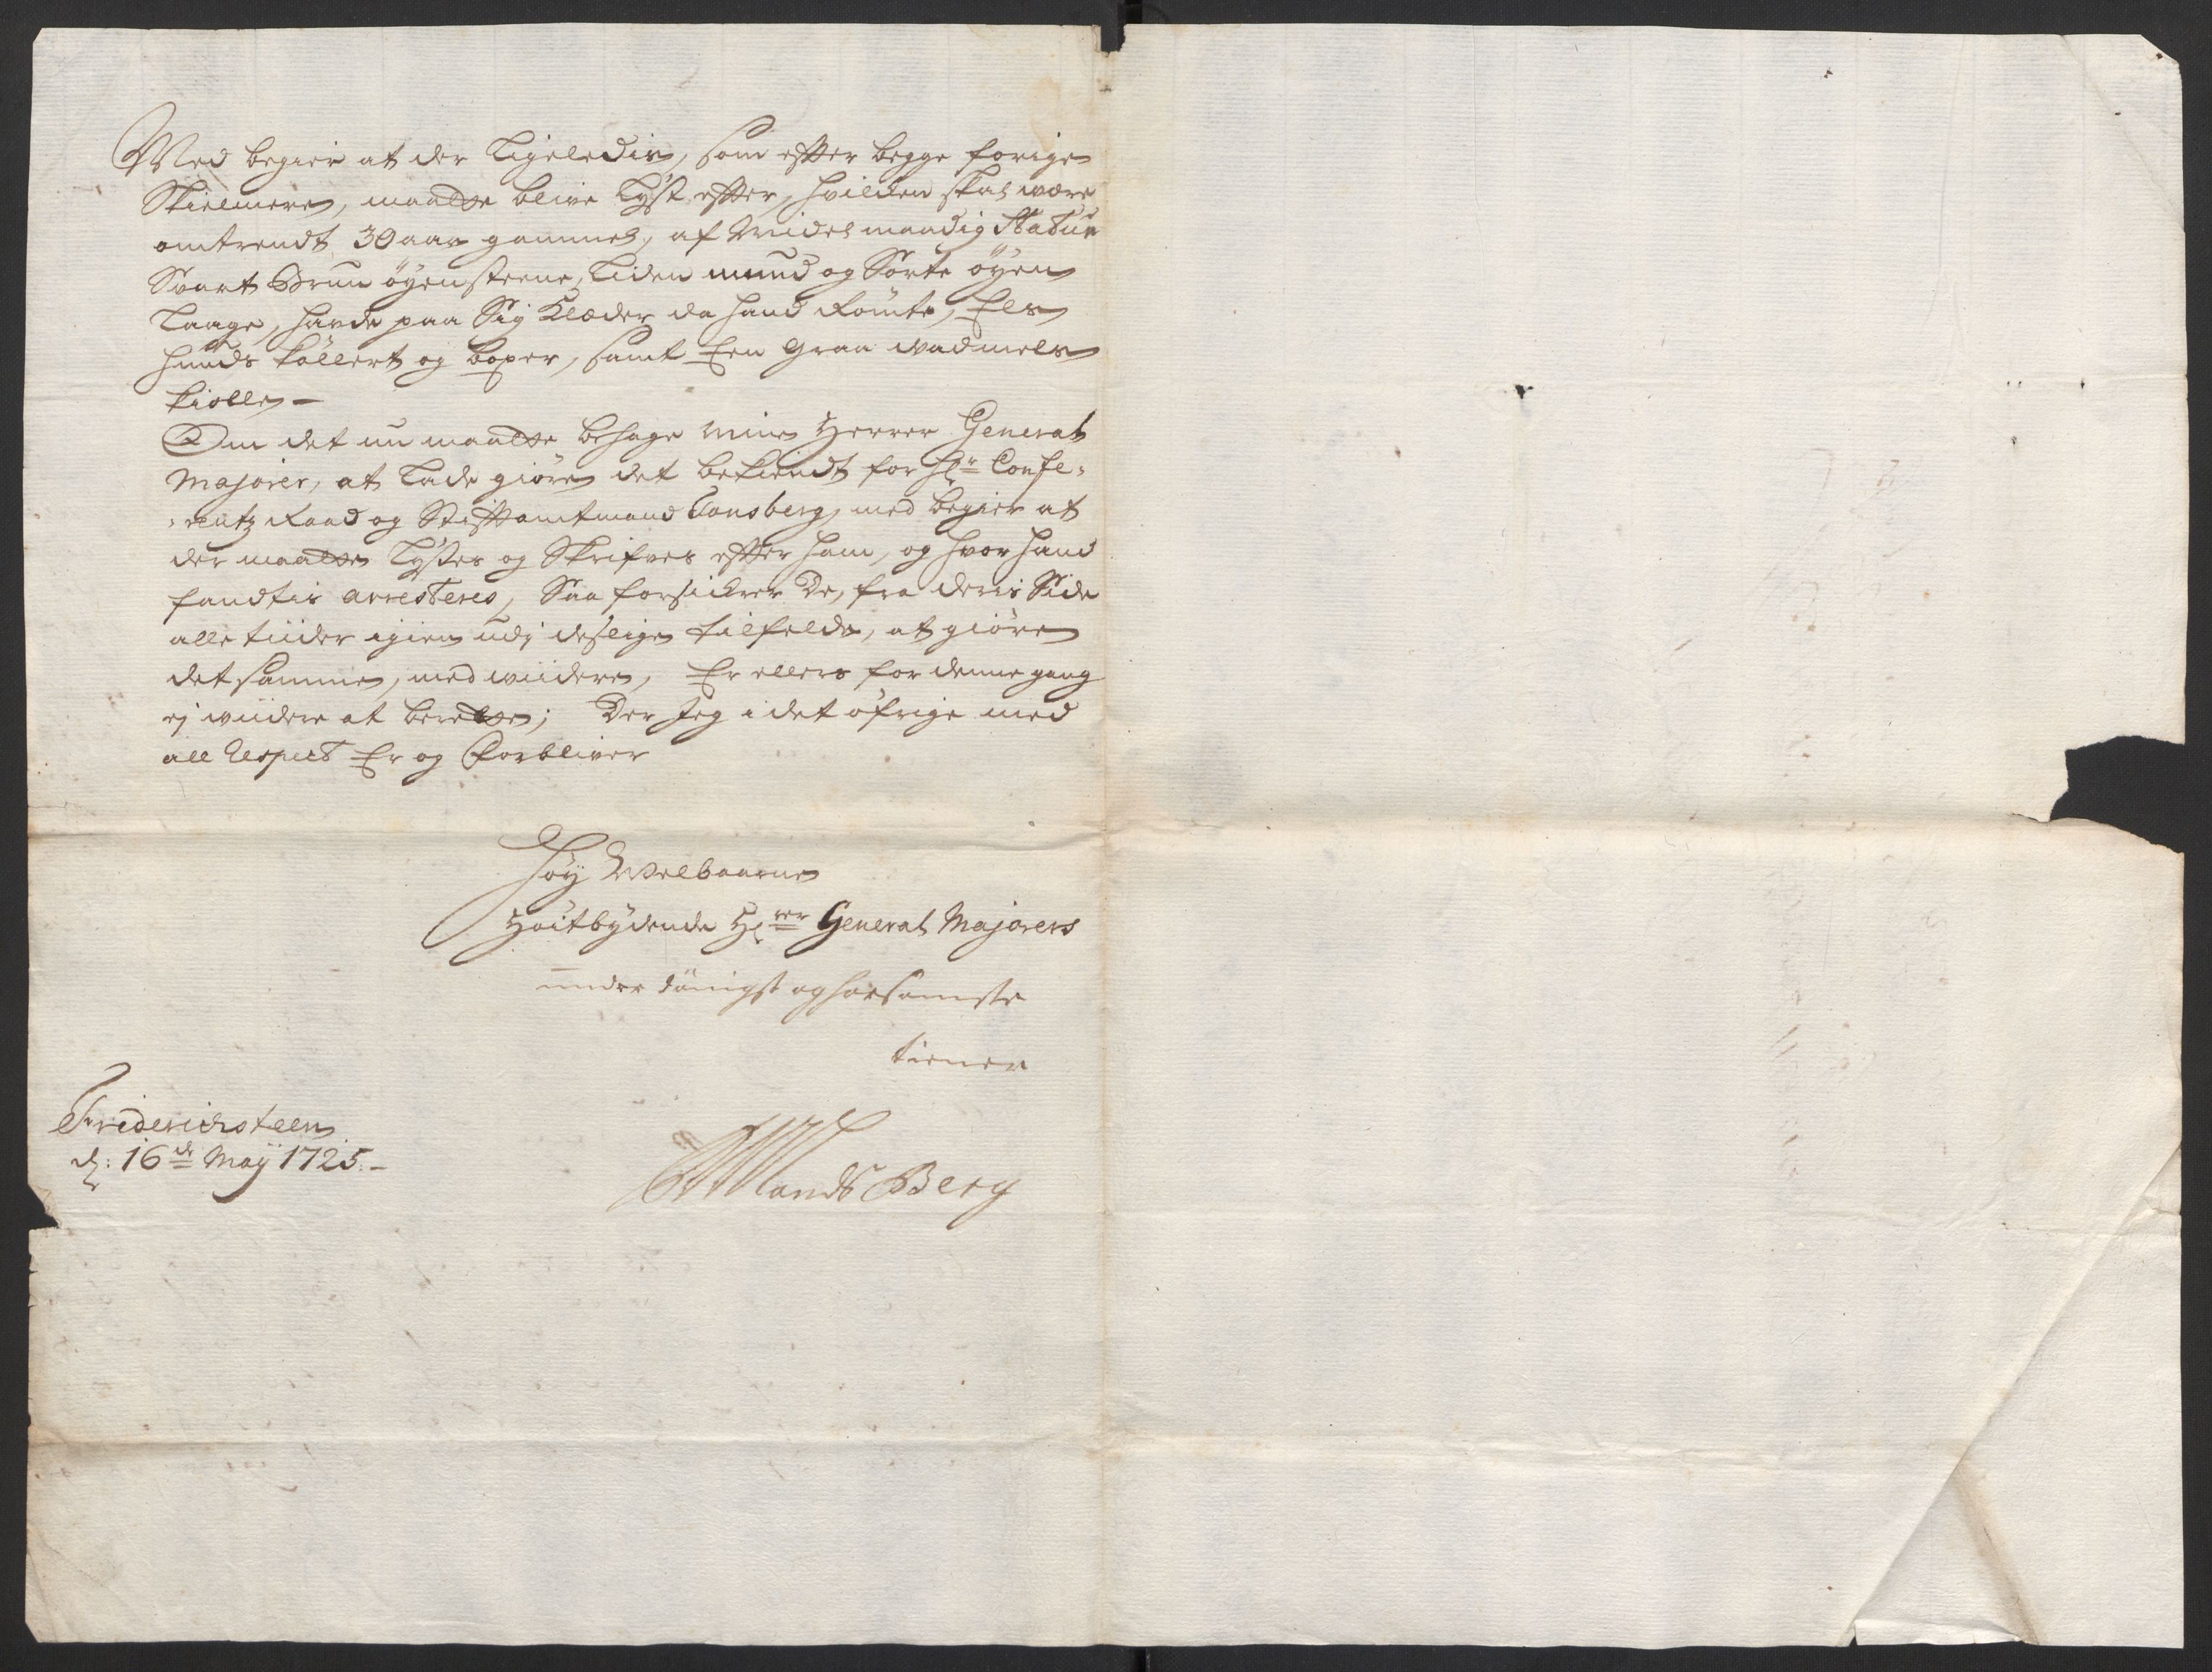 Med begier at der Ligeledis, som efter begge forige
Skielmere, maatte blive Lyst efter, hvilcken skal være
omtrendt 30 aar gammel, af Midelmaadig Statur
Svart Brun øyensteene, Liden mund og Sorte øyen
Laage, hafde paa Sig Klæder da hand Rømte, Els
huuds Køllert og boxer, samt Een graa vadmels
kiolle –
Om det nu maatte behage mine Herrer General
Majorer, at Lade giøre det bekiendt for Hr Confe-
-rentz Raad og Stiftamtmand Tonsberg, med begier at
der maatte Lyses og Skrifves efter ham, og hvor hand
fandtis arresteres, Saa forsickrer De, fra deris Side
alle tiider igien udj deslige tilfelde, at giøre
det samme, med viidere, Er ellers for denne gang
ej viidere at berette; Der Jeg i det øfrige med
all Respect Er og Forbliver
Høy Welbaarne
Høitbydende Hrer General Majorers
under dånigst og horsamste
tiener
Friderichsteen
d: 16de Maÿ 1725.–
Landt Berg